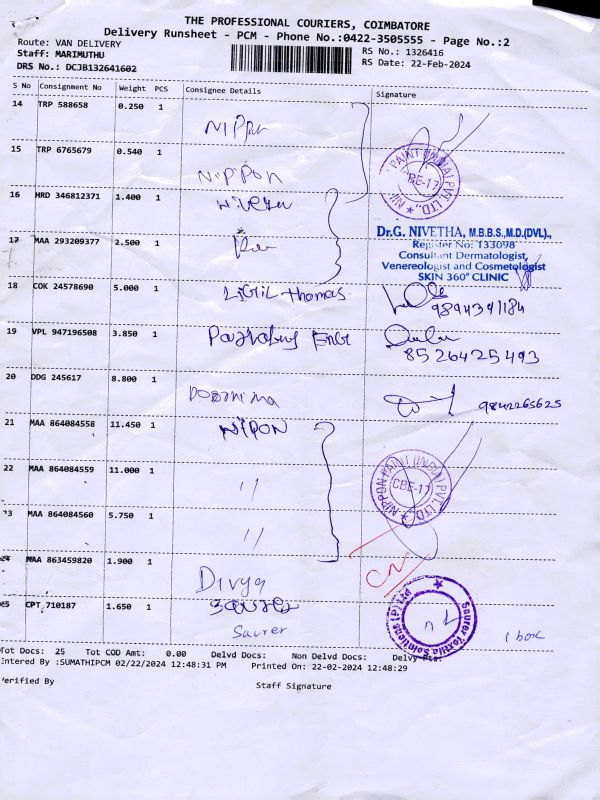 THE PROFESSIONAL COURIERS, COIMBATORE
Delivery Runsheet - PCM - Phone No.:0422-3505555 - Page No.:2
Route: VAN DELIVERY RS No.: 1326416
Staff: MARIMUTHU RS Date: 22-Feb-2024
DRS No.: DCJB132641602
S No Consignment No Weight PCS Consignee Details Signature
14 TRP 588658 0.250 1
Nippon
15 TRP 6765679 0.540 1
NIPPON
NIPPON PAINT (INDIA) PVT. LTD. CBE-17
16 HRD 346812371 1.400 1
17 MAA 293209377 2.500 1
Dr.G. NIVETHA, M.B.B.S.,M.D.(DVL).,
Register No: 133098
Consultant Dermatologist,
Venereologist and Cosmetologist
SKIN 360° CLINIC
18 COK 24578690 5.000 1 thomas
9894391184
19 VPL 947196508 3.850 1
8526425493
20 DDG 245617 8.800 1
9842265625
21 MAA 864084558 11.450 1 NIPPON
22 MAA 864084559 11.000 1 "
NIPPON PAINT (INDIA) PVT. LTD. CBE-17
23 MAA 864084560 5.750 1 "
24 MAA 863459820 1.900 1
Divya
25 CPT 710187 1.650 1
Saurer 1 box
Tot Docs: 25 Tot COD Amt: 0.00 Delvd Docs: Non Delvd Docs: Delvy Pts:
Entered By :SUMATHIPCM 02/22/2024 12:48:31 PM Printed On: 22-02-2024 12:48:29
Verified By Staff Signature